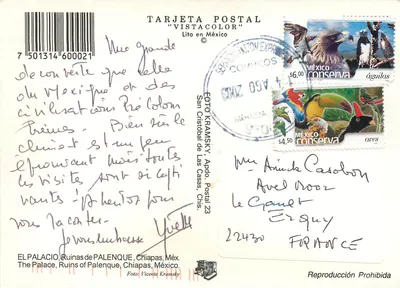 TARJETA POSTAL
"VISTACOLOR"
Lito en México
7 501314 600021
Une grande
découverte que celle
du Mexique et des
civilisations Pré Colom
biennes. Bien sûr le
climat est un peu
éprouvant mais toutes
les visites sont
à bientôt pour
vous raconter.
Je vous embrasse
Yvette
FOTO KRAMSKY, Apdo. Postal 23
San Cristóbal de Las Casas, Chis.
CORREOS
MÉXICO
conserva
águilas
$6.00
MÉXICO
conserva
$4.50
Casabon
Le Gault
Erquy
22430 FRANCE
EL PALACIO, Ruinas de PALENQUE, Chiapas, Méx.
The Palace, Ruins of Palenque, Chiapas, México.
Foto: Vicente Kramsky
Reproducción Prohibida